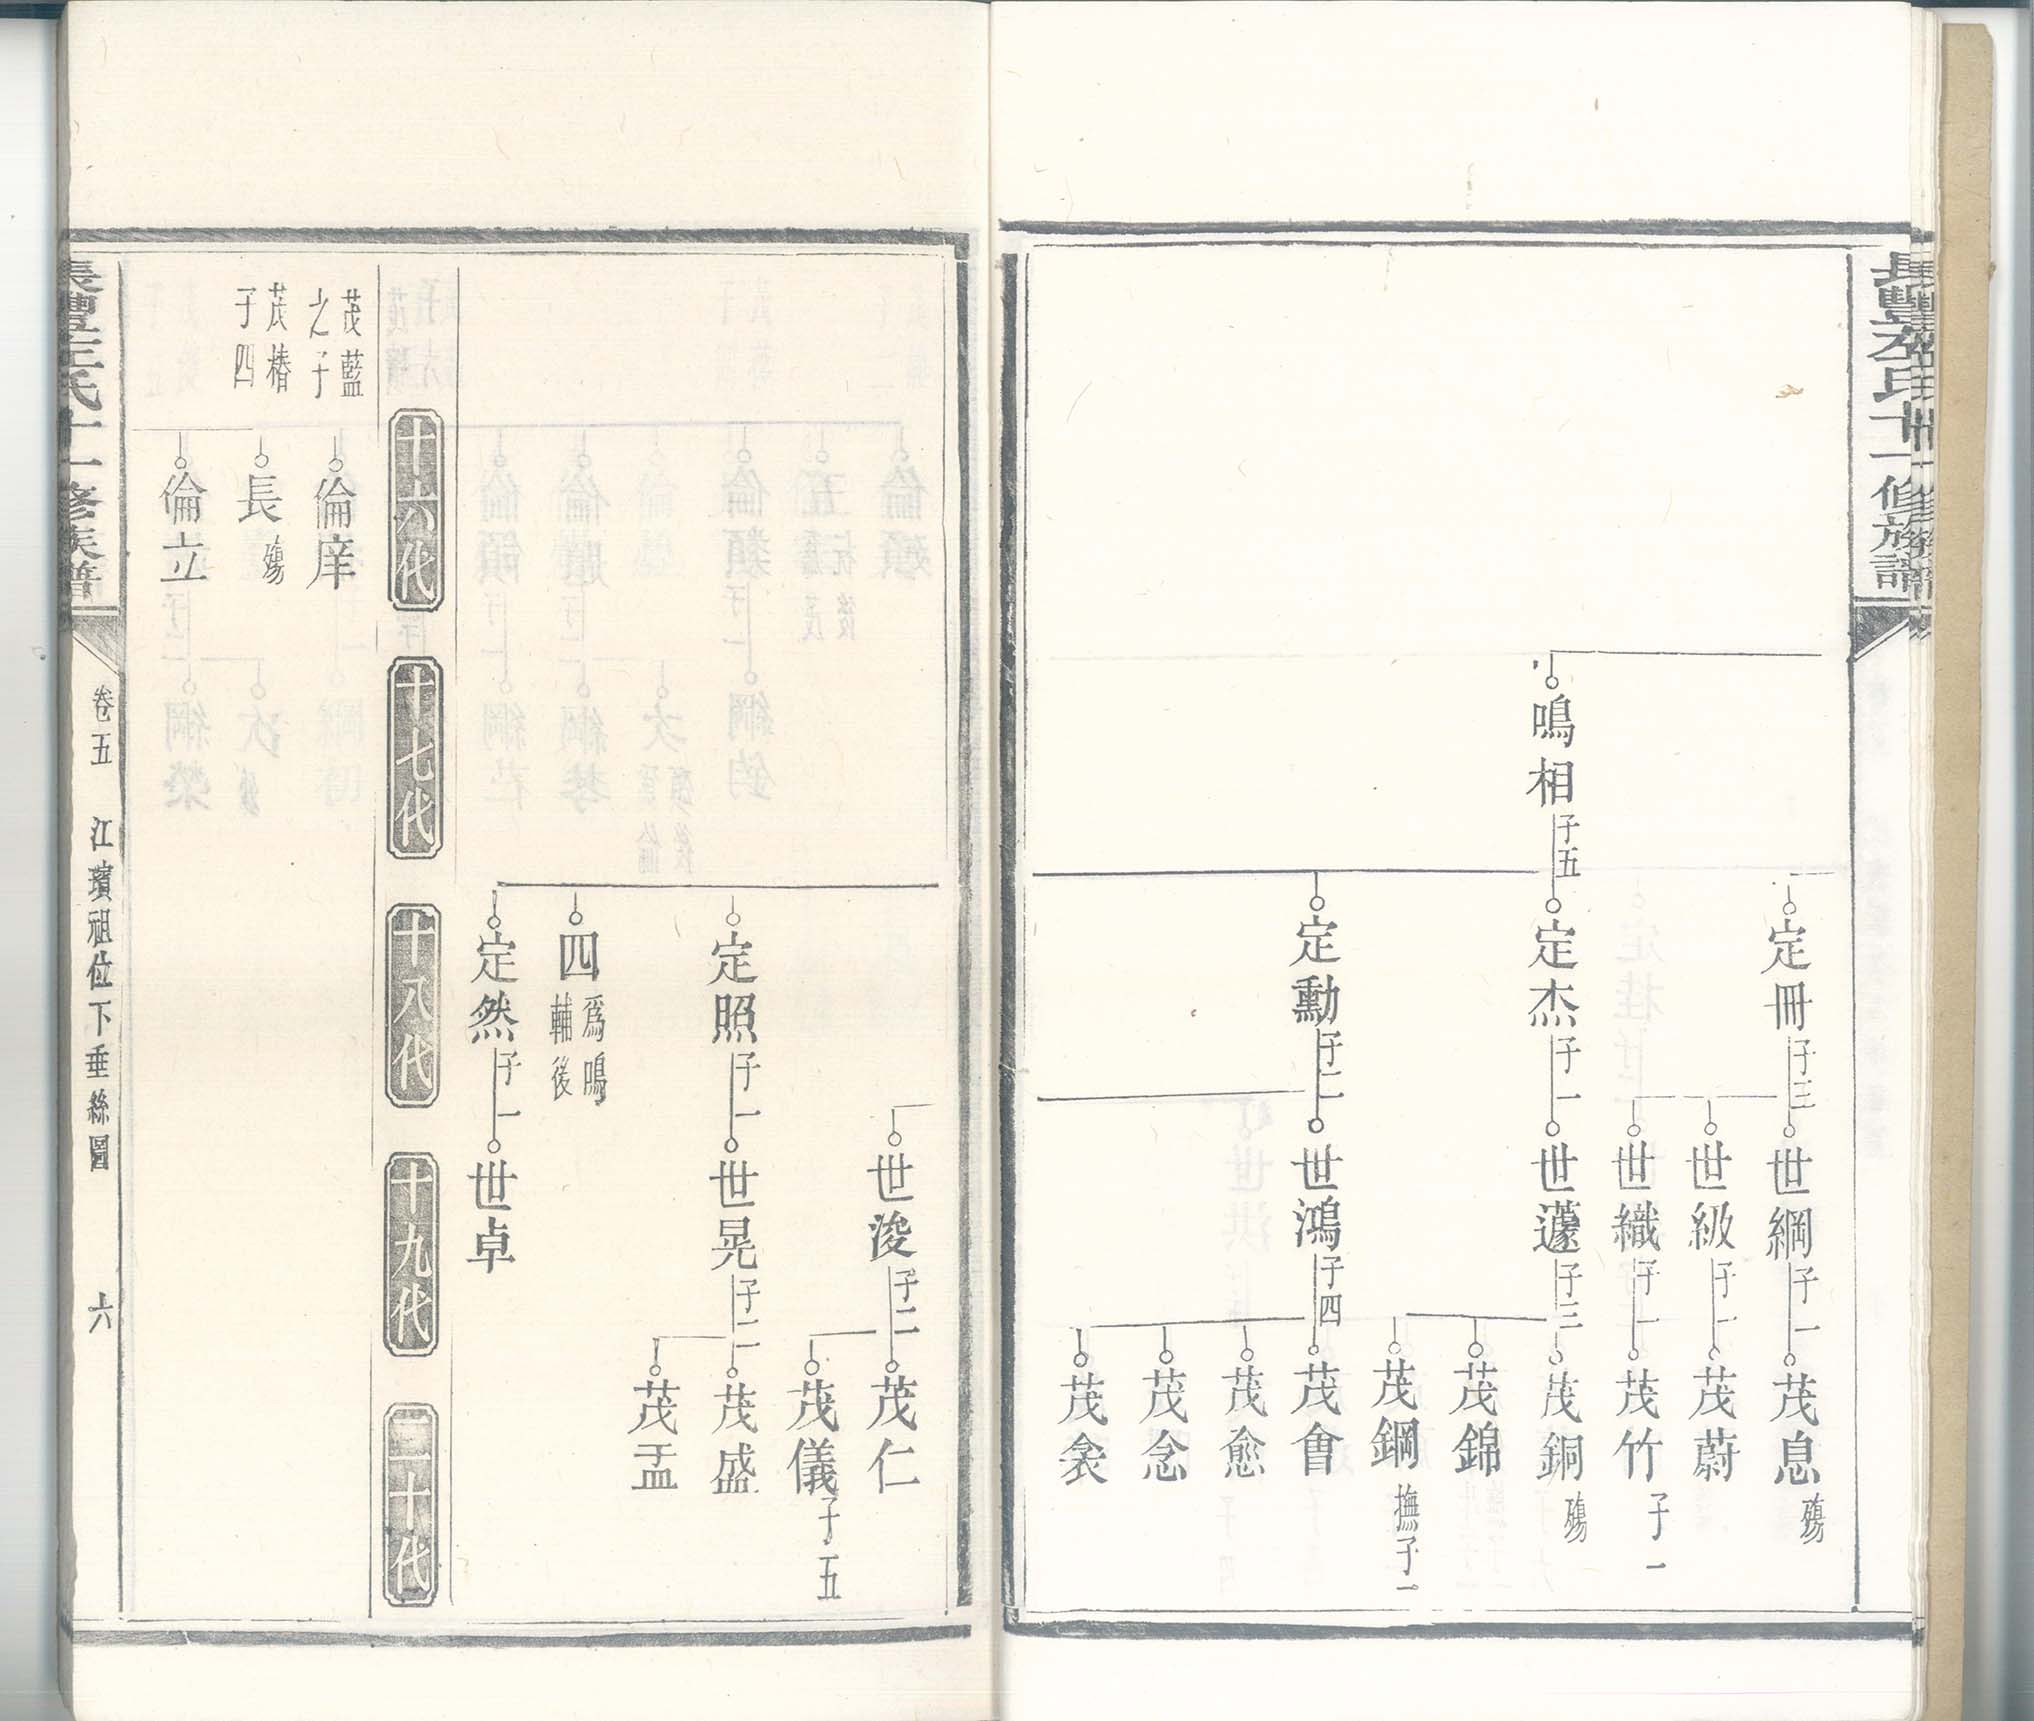 長豐左氏十一修族譜
鳴相 子五
定冊 子三
世綱 子一
茂息 殤
世級 子一
茂蔚
世織 子一
茂竹 子一
定杰 子一
世蘧 子三
茂銅 殤
茂錦
茂鋼 撫子一
定勳 子二
世鴻 子四
茂會
茂愈
茂念
茂衾
世浚 子二
茂仁
茂儀 子五
定照 子一
世晃 子二
茂盛
茂盂
四 爲鳴輔後
定然 子一
世卓
十六代
十七代
十八代
十九代
二十代
茂藍之子
倫庠
茂椿子四
長 殤
倫立
長豐左氏十一修族譜
卷五 江濱祖位下垂絲圖 六